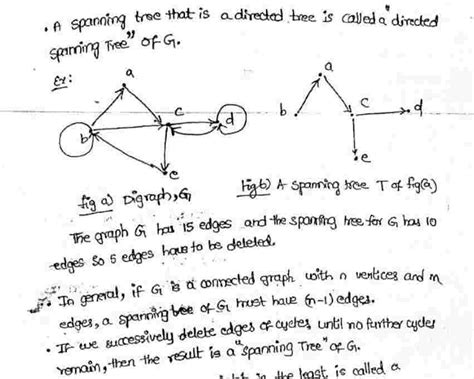 • A spanning tree that is a directed tree is called a "directed
spanning Tree" of G.
Ex:
a
b
c
d
e
a
b
c
d
e
fig a) Digraph, G
Fig b) A spanning tree T of fig(a)
The graph G has 15 edges and the spanning tree for G has 10
edges so 5 edges have to be deleted.
• In general, if G is a connected graph with n vertices and m
edges, a spanning tree of G must have (n-1) edges.
• If we successively delete edges of cycles until no further cycles
remain, then the result is a "spanning Tree" of G.
in the least is called a